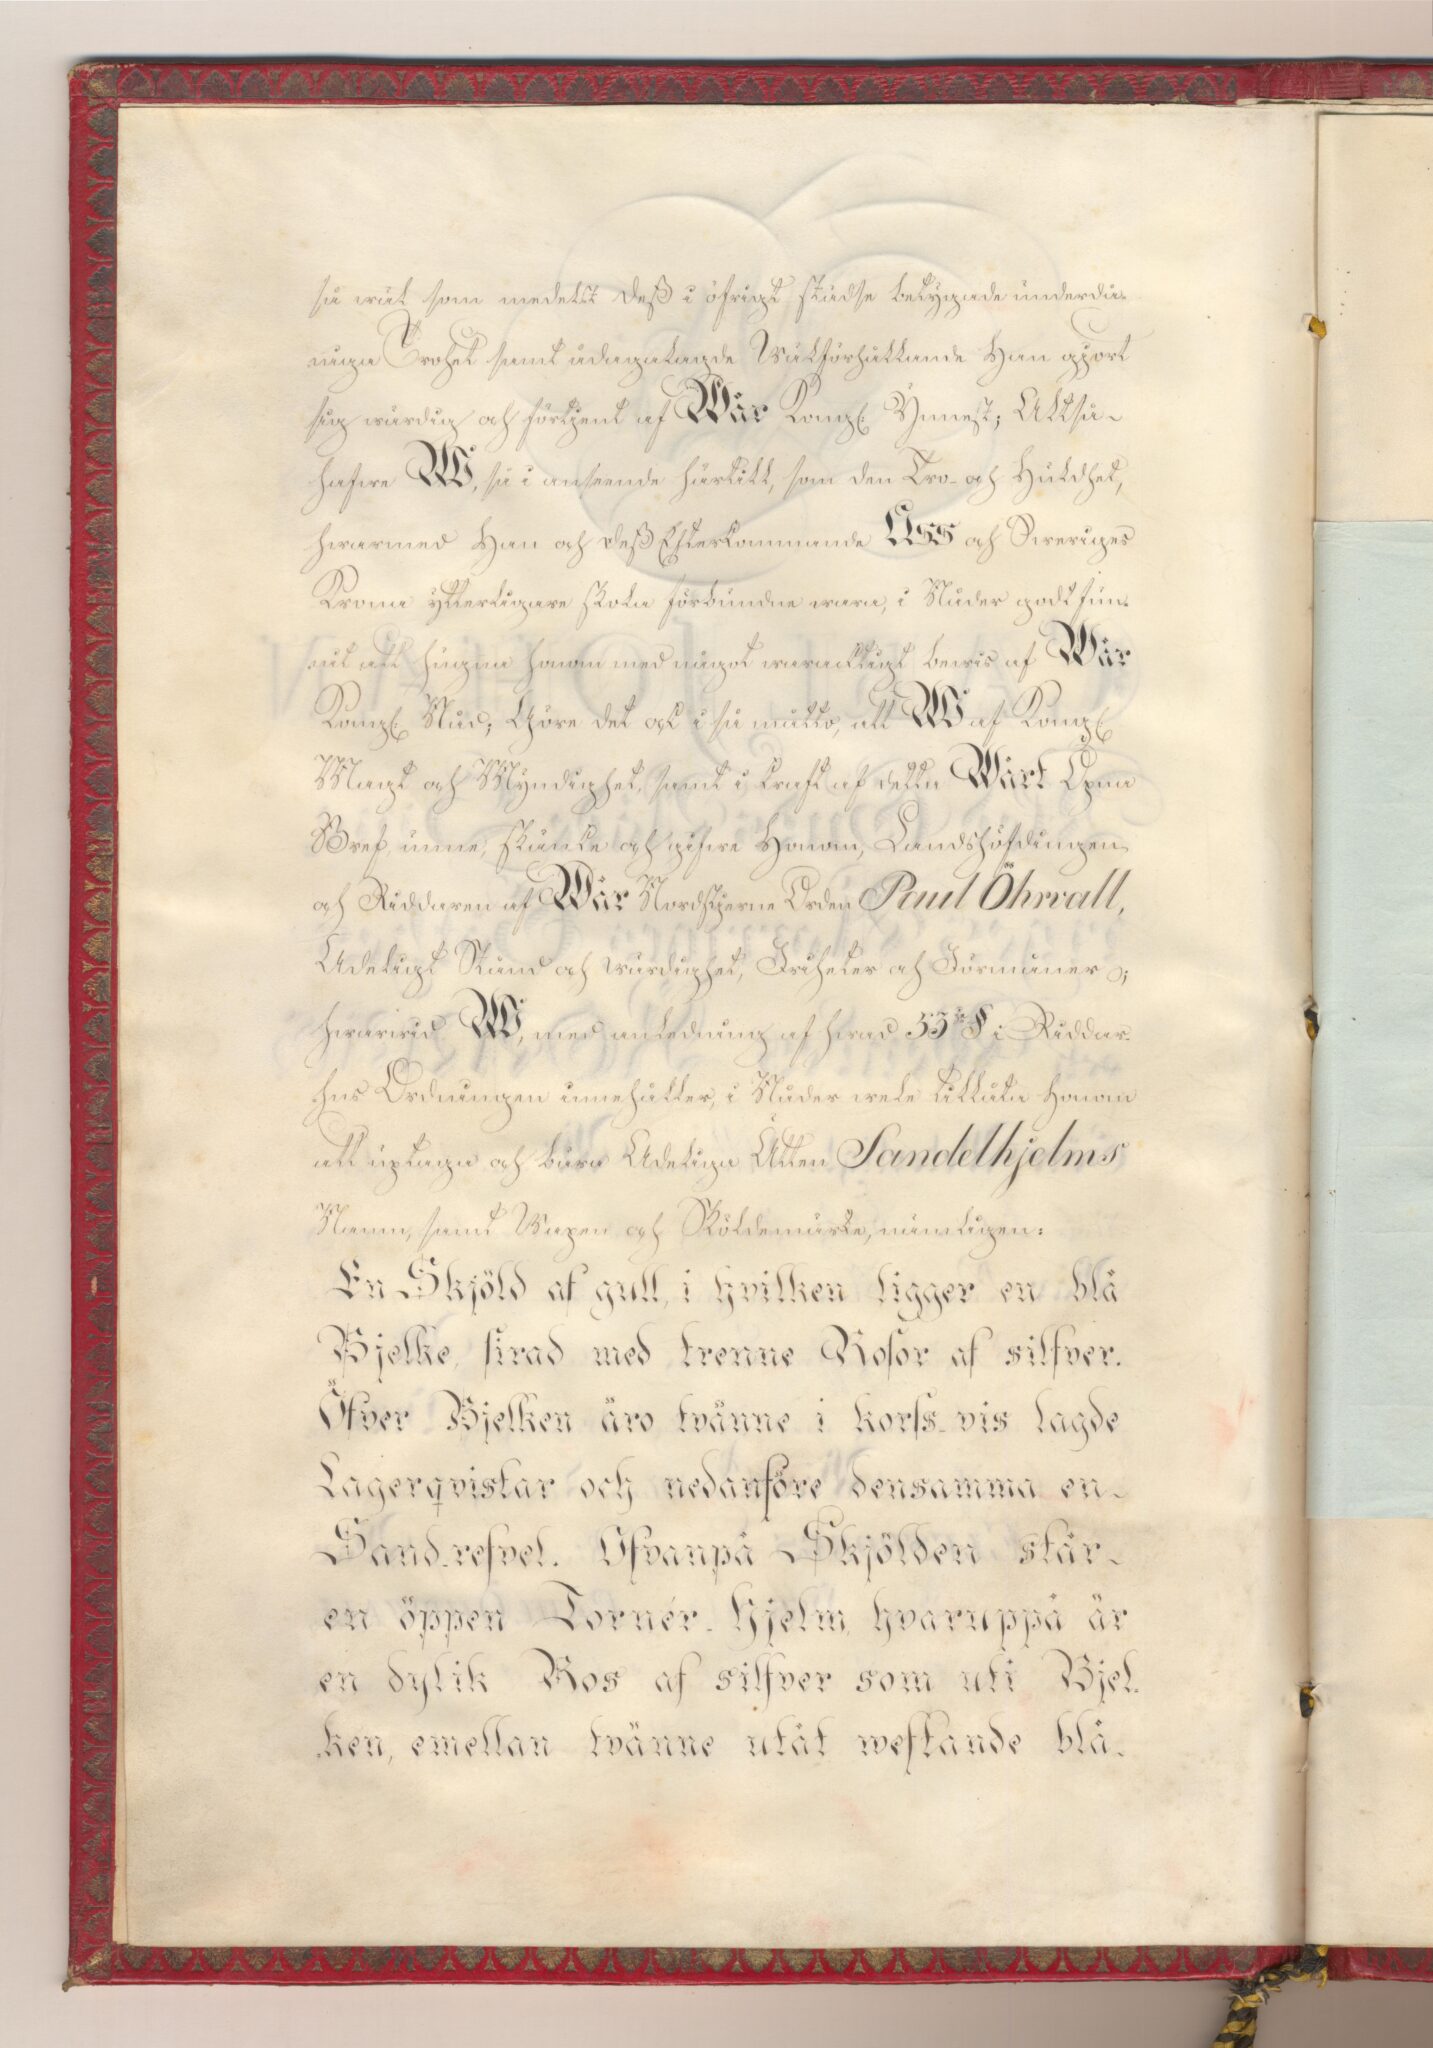 så wäl som medelst deß i öfrigt städse betygade underdå-
niga Trohet samt ådagalagde Wälförhållande Han gjort
sig wärdig och förtjent af Wår Kongl. Ynnest; Alltså-
hafwe W, så i anseende härtill, som den Tro- och Huldhet,
hwarmed Han och deß Efterkommande Oss och Sweriges
Krona ytterligare skola förbundne wara, i Nåder godt fun-
nit att hugna honom med något waracktigt bewis af Wår
Kongl. Nåd; Göre det ock i så måtto, att W af Kongl.
Magt och Myndighet, samt i kraft af detta Wårt Öpna
Bref, unne, skänke och gifwe Honom, Landshöfdingen
och Riddaren af Wår Nordstjerne Orden Paul Öhrvall,
Adeligt Stånd och wärdighet, Friheter och Förmåner;
hwarwid W, med anledning af hwad 53dje § i Riddar-
hus Ordningen innehåller, i Nåder wele tillåta Honom
att uptaga och bära Adeliga Ätten Sandelhjelms
Namn, samt Wapen och Sköldemärke, nämligen:
En Skjöld af gull, i hvilken ligger en blå
Bjelke, sirad med trenne Rosor af silfver.
Öfver Bjelken äro tvänne i korss-vis lagde
Lagerqvistar och nedanföre densamma en-
Sand-refvel. Ofvanpå Skjölden står-
en öppen Tornér-Hjelm, hvaruppå är
en dylik Ros af silfver som uti Bjel-
ken, emellan tvänne utåt westande blå-